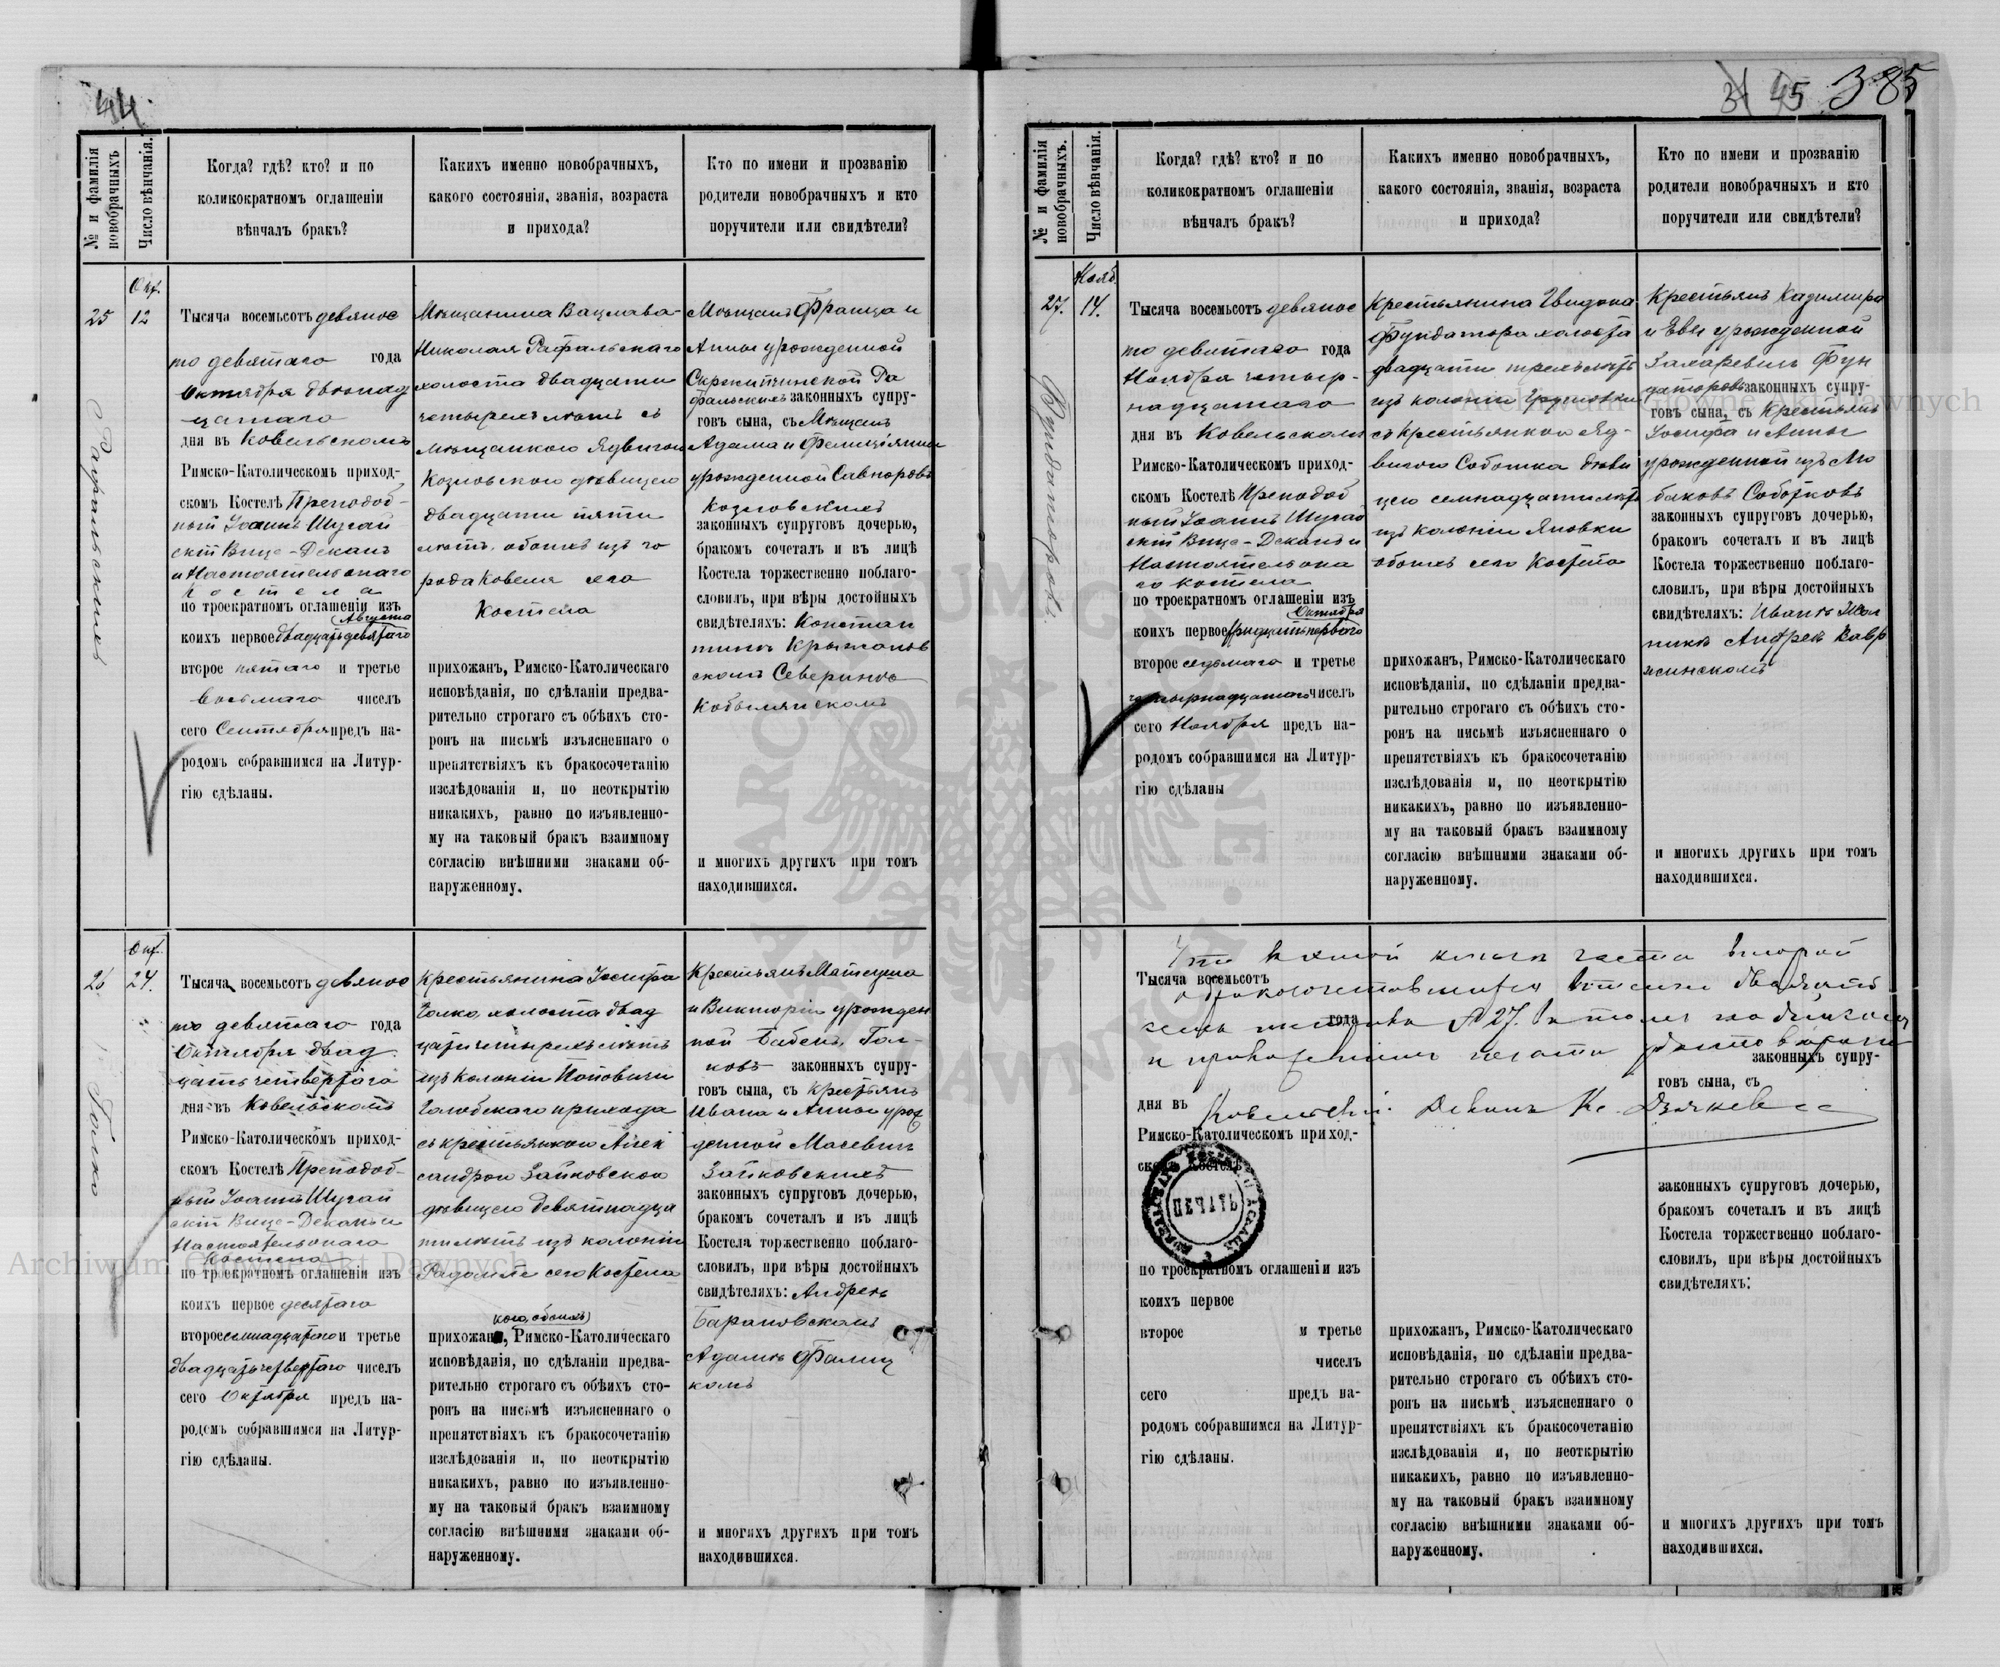 44.
№ и фамилія новобрачныхъ
Число вѣнчанія.
Когда? гдѣ? кто? и по
коликократномъ оглашеніи
вѣнчалъ бракъ?
Какихъ именно новобрачныхъ,
какого состоянія, званія, возраста
и прихода?
Кто по имени и прозванію
родители новобрачныхъ и кто
поручители или свидѣтели?
25
Рафальскихъ
Окт.
12
Тысяча восемьсотъ девянос
то девятаго года
Октября двенад
цатаго
дня въ Ковельскомъ
Римско-Католическомъ приход-
скомъ Костелѣ Преподоб-
ный Іоаннъ Шугай
скій Вице-Деканъ
и Настоятель онаго
костела
по троекратномъ оглашеніи изъ
Августа
коихъ первое двадцать девятаго
второе пятаго и третье
восьмаго чиселъ
сего Сентября предъ на-
родомъ собравшимся на Литур-
гію сдѣланы.
Мѣщанина Вацлава-
Николая Рафальскаго
холоста двадцати
четырехъ лѣтъ съ
мѣщанкою Ядвигою
Козловскою дѣвицею
двадцати пяти
лѣтъ, обоихъ изъ го
рода Ковеля сего
Костела
прихожанъ, Римско-Католическаго
исповѣданія, по сдѣланіи предва-
рительно строгаго съ обѣихъ сто-
ронъ на письмѣ изъясненнаго о
препятствіяхъ къ бракосочетанію
изслѣдованія и, по неоткрытію
никакихъ, равно по изъявленно-
му на таковый бракъ взаимному
согласію внѣшними знаками об-
наруженному.
Мѣщанъ Франца и
Анны урожденной
Ра
фальскихъ законныхъ супру-
говъ сына, съ Мѣщанъ
Адама и Фелиціянны
урожденной
Козловскихъ
законныхъ супруговъ дочерью,
бракомъ сочеталъ и въ лицѣ
Костела торжественно поблаго-
словилъ, при вѣры достойныхъ
свидѣтеляхъ: Констан
тинѣ Крыжанов
скомъ Северинѣ
Кобылянскомъ
и многихъ другихъ при томъ
находившихся.
26
Галко
Окт.
24.
Тысяча восемьсотъ девянос
то девятаго года
Октября двад
цать четвертаго
дня въ Ковельскомъ
Римско-Католическомъ приход-
скомъ Костелѣ Преподоб-
ный Іоаннъ Шугай
скій Вице-Деканъ и
Настоятель онаго
Костела
по троекратномъ оглашеніи изъ
коихъ первое десятаго
второе семнадцатаго и третье
двадцать четвертаго чиселъ
сего Октября предъ на-
родомъ собравшимся на Литур-
гію сдѣланы.
Крестьянина Іосифа
Галко, холоста двад
цати четырехъ лѣтъ
изъ колоніи Поповичи
Голобскаго прихода
съ крестьянкою Алек
сандрою Зайковскою
дѣвицею девятнадца
ти лѣтъ изъ колоніи
сего Костела
прихожанъ, Римско-Католическаго
исповѣданія, по сдѣланіи предва-
рительно строгаго съ обѣихъ сто-
ронъ на письмѣ изъясненнаго о
препятствіяхъ къ бракосочетанію
изслѣдованія и, по неоткрытію
никакихъ, равно по изъявленно-
му на таковый бракъ взаимному
согласію внѣшними знаками об-
наруженному.
Крестьянъ Матеуша
и Викторіи урожден
ной Бабекъ, Гал-
ковъ законныхъ супру-
говъ сына, съ крестьянъ
Ивана и Анны урож
денной Мацевичъ
Зайковскихъ
законныхъ супруговъ дочерью,
бракомъ сочеталъ и въ лицѣ
Костела торжественно поблаго-
словилъ, при вѣры достойныхъ
свидѣтеляхъ: Андреѣ
Барановскомъ
Адамѣ
и многихъ другихъ при томъ
находившихся.
45 385
№ и фамилія новобрачныхъ.
Число вѣнчанія.
Когда? гдѣ? кто? и по
коликократномъ оглашеніи
вѣнчалъ бракъ?
Какихъ именно новобрачныхъ,
какого состоянія, званія, возраста
и прихода?
Кто по имени и прозванію
родители новобрачныхъ и кто
поручители или свидѣтели?
27.
Фундаторовъ
Нояб
14.
Тысяча восемьсотъ девянос
то девятаго года
Ноября четыр-
надцатаго
дня въ Ковельскомъ
Римско-Католическомъ приход-
скомъ Костелѣ Преподоб
ный Іоаннъ Шугай
скій Вице-Деканъ и
Настоятель она
го костела
по троекратномъ оглашеніи изъ
Октября
коихъ первое тридцать перваго
второе седьмаго и третье
четырнадцатаго чиселъ
сего Ноября предъ на-
родомъ собравшимся на Литур-
гію сдѣланы
Крестьянина Гвидона
Фундатора холоста
двадцати трехъ лѣтъ
изъ колоніи
съ крестьянкою Яд-
вигою Соботка дѣви
цею семнадцати лѣтъ
изъ колоніи Яновки
обоихъ сего Костела
прихожанъ, Римско-Католическаго
исповѣданія, по сдѣланіи предва-
рительно строгаго съ обѣихъ сто-
ронъ на письмѣ изъясненнаго о
препятствіяхъ къ бракосочетанію
изслѣдованія и, по неоткрытію
никакихъ, равно по изъявленно-
му на таковый бракъ взаимному
согласію внѣшними знаками об-
наруженному.
Крестьянъ Казимира
и Евы урожденной
Захаревичъ Фун
даторовъ законныхъ супру-
говъ сына, съ Крестьянъ
Іосифа и Анны
урожденной изъ Лю
баковъ Соботковъ
законныхъ супруговъ дочерью,
бракомъ сочеталъ и въ лицѣ
Костела торжественно поблаго-
словилъ, при вѣры достойныхъ
свидѣтеляхъ: Иванѣ
Андреѣ Завр
и многихъ другихъ при томъ
находившихся.
Что въ книги части второй
о бракосочетавшихся двадцать
семь № 27. въ томъ подписью
и приложеніемъ печати удостовѣряю
Ковельскій Деканъ Кс.
ПЕЧАТЬ
Тысяча восемьсотъ
года
дня въ
Римско-Католическомъ приход-
скомъ Костелѣ
по троекратномъ оглашеніи изъ
коихъ первое
второе и третье
чиселъ
сего предъ на-
родомъ собравшимся на Литур-
гію сдѣланы.
прихожанъ, Римско-Католическаго
исповѣданія, по сдѣланіи предва-
рительно строгаго съ обѣихъ сто-
ронъ на письмѣ изъясненнаго о
препятствіяхъ къ бракосочетанію
изслѣдованія и, по неоткрытію
никакихъ, равно по изъявленно-
му на таковый бракъ взаимному
согласію внѣшними знаками об-
наруженному.
законныхъ супру-
говъ сына, съ
законныхъ супруговъ дочерью,
бракомъ сочеталъ и въ лицѣ
Костела торжественно поблаго-
словилъ, при вѣры достойныхъ
свидѣтеляхъ:
и многихъ другихъ при томъ
находившихся.
Archiwum Główne Akt Dawnych
Archiwum Główne Akt Dawnych